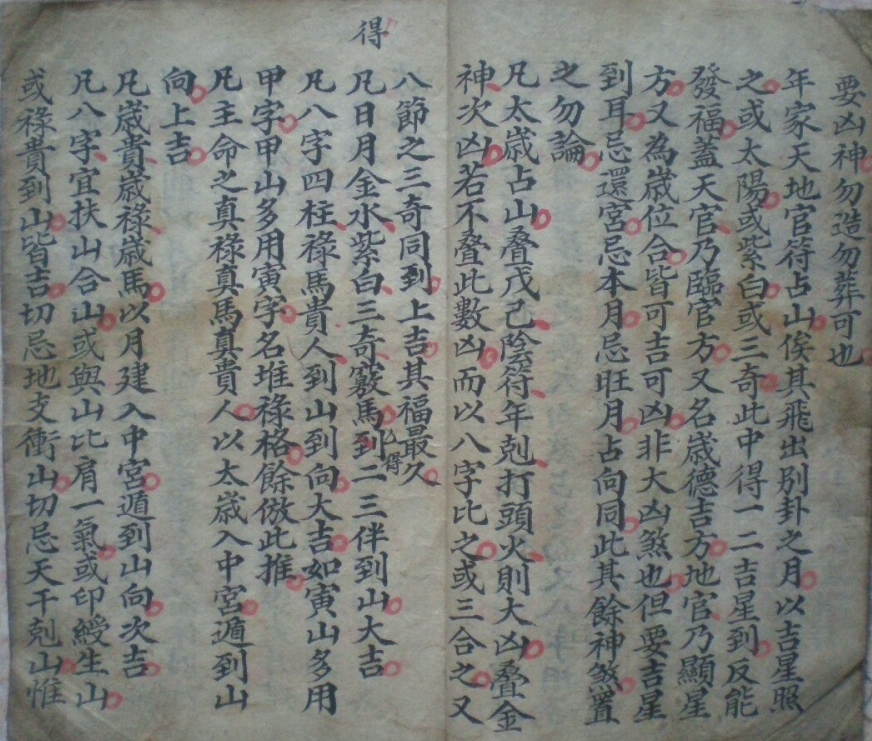 要凶神勿造勿葬可也
年家天地官符占山俟其飛出別卦之月以吉星照
之或太陽或紫白或三奇此中得一二吉星到反能
發福蓋天官乃臨官方又名歲德吉方地官乃顯星
方又為歲位合皆可吉可凶非大凶煞也但要吉星
到耳忌還宮忌本月忌旺月占向同此其餘神煞置
之勿論
凡太歲占山疊戊己陰符年剋打頭火則大凶疊金
神次凶若不疊此數凶而以八字比之或三合之又
得
八節之三奇同到上吉其福最久
凡日月金水紫白三奇竅馬到乙得二三伴到山大吉
凡八字四柱祿馬貴人到山到向大吉如寅山多用
甲字甲山多用寅字名堆祿格餘倣此推
凡主命之真祿真馬真貴人以太歲入中宮遁到山
向上吉
凡歲貴歲祿歲馬以月建入中宮遁到山向次吉
凡八字宜扶山合山或與山比肩一氣或印綬生山
或祿貴到山皆吉切忌地支衝山切忌天干剋山惟